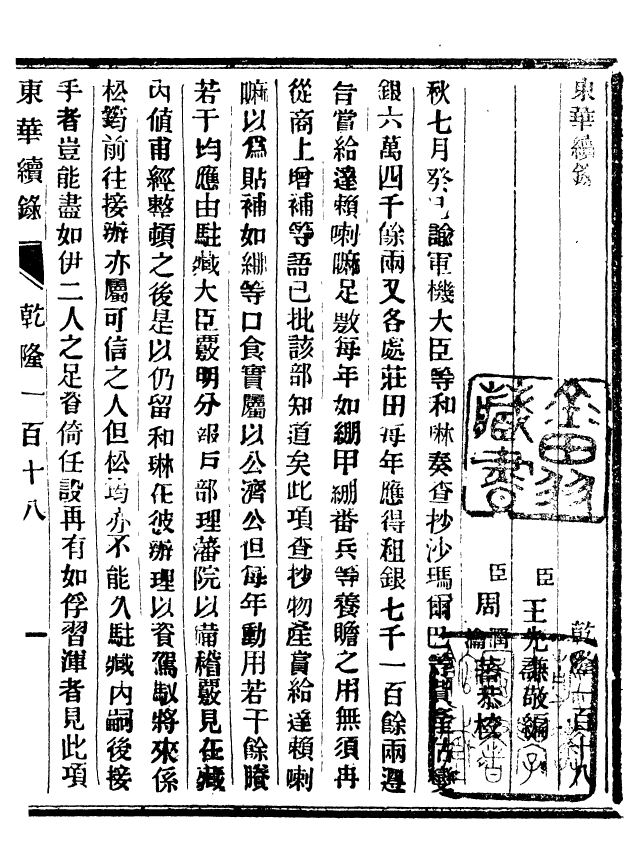 東華續錄
乾隆一百十八
臣王先謙敬編
臣周潤蕃恭校
瀹
秋七月癸巳諭軍機大臣等和琳奏查抄沙瑪爾巴等貲產估變
銀六萬四千餘兩又各處莊田每年應得租銀七千一百餘兩遵
旨賞給達賴喇嘛足敷每年如綳甲綳番兵等養贍之用無須再
從商上增補等語已批該部知道矣此項查抄物產賞給達賴喇
嘛以爲貼補如綳等口食實屬以公濟公但每年動用若干餘賸
若干均應由駐藏大臣覈明分報戶部理藩院以備稽覈見在藏
內値甫經整頓之後是以仍留和琳在彼辦理以資駕馭將來係
松筠前往接辦亦屬可信之人但松筠亦不能久駐藏內嗣後接
手者豈能盡如伊二人之足資倚任設再有如俘習渾者見此項
東華續錄
乾隆一百十八
一